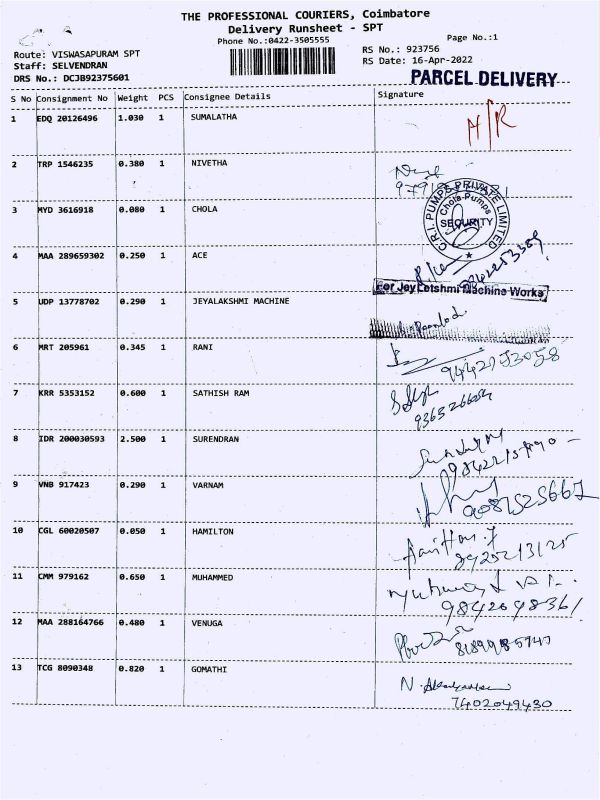 THE PROFESSIONAL COURIERS, Coimbatore
Delivery Runsheet - SPT
Phone No.:0422-3505555
Page No.:1
Route: VISWASAPURAM SPT
RS No.: 923756
Staff: SELVENDRAN
RS Date: 16-Apr-2022
DRS No.: DCJB92375601
PARCEL DELIVERY
S No Consignment No Weight PCS Consignee Details Signature
1 EDQ 20126496 1.030 1 SUMALATHA H/R
2 TRP 1546235 0.380 1 NIVETHA
3 MYD 3616918 0.080 1 CHOLA
C.R.I. PUMPS PRIVATE LIMITED
Chola-Pumps
SECURITY
4 MAA 289659302 0.250 1 ACE
For Jey Letshmi Machine Works
5 UDP 13778702 0.290 1 JEYALAKSHMI MACHINE
6 MRT 205961 0.345 1 RANI
7 KRR 5353152 0.600 1 SATHISH RAM
8 IDR 200030593 2.500 1 SURENDRAN
9 VNB 917423 0.290 1 VARNAM
10 CGL 60020507 0.050 1 HAMILTON
11 CMM 979162 0.650 1 MUHAMMED
9842048361
12 MAA 288164766 0.480 1 VENUGA
13 TCG 8090348 0.820 1 GOMATHI
7402049430